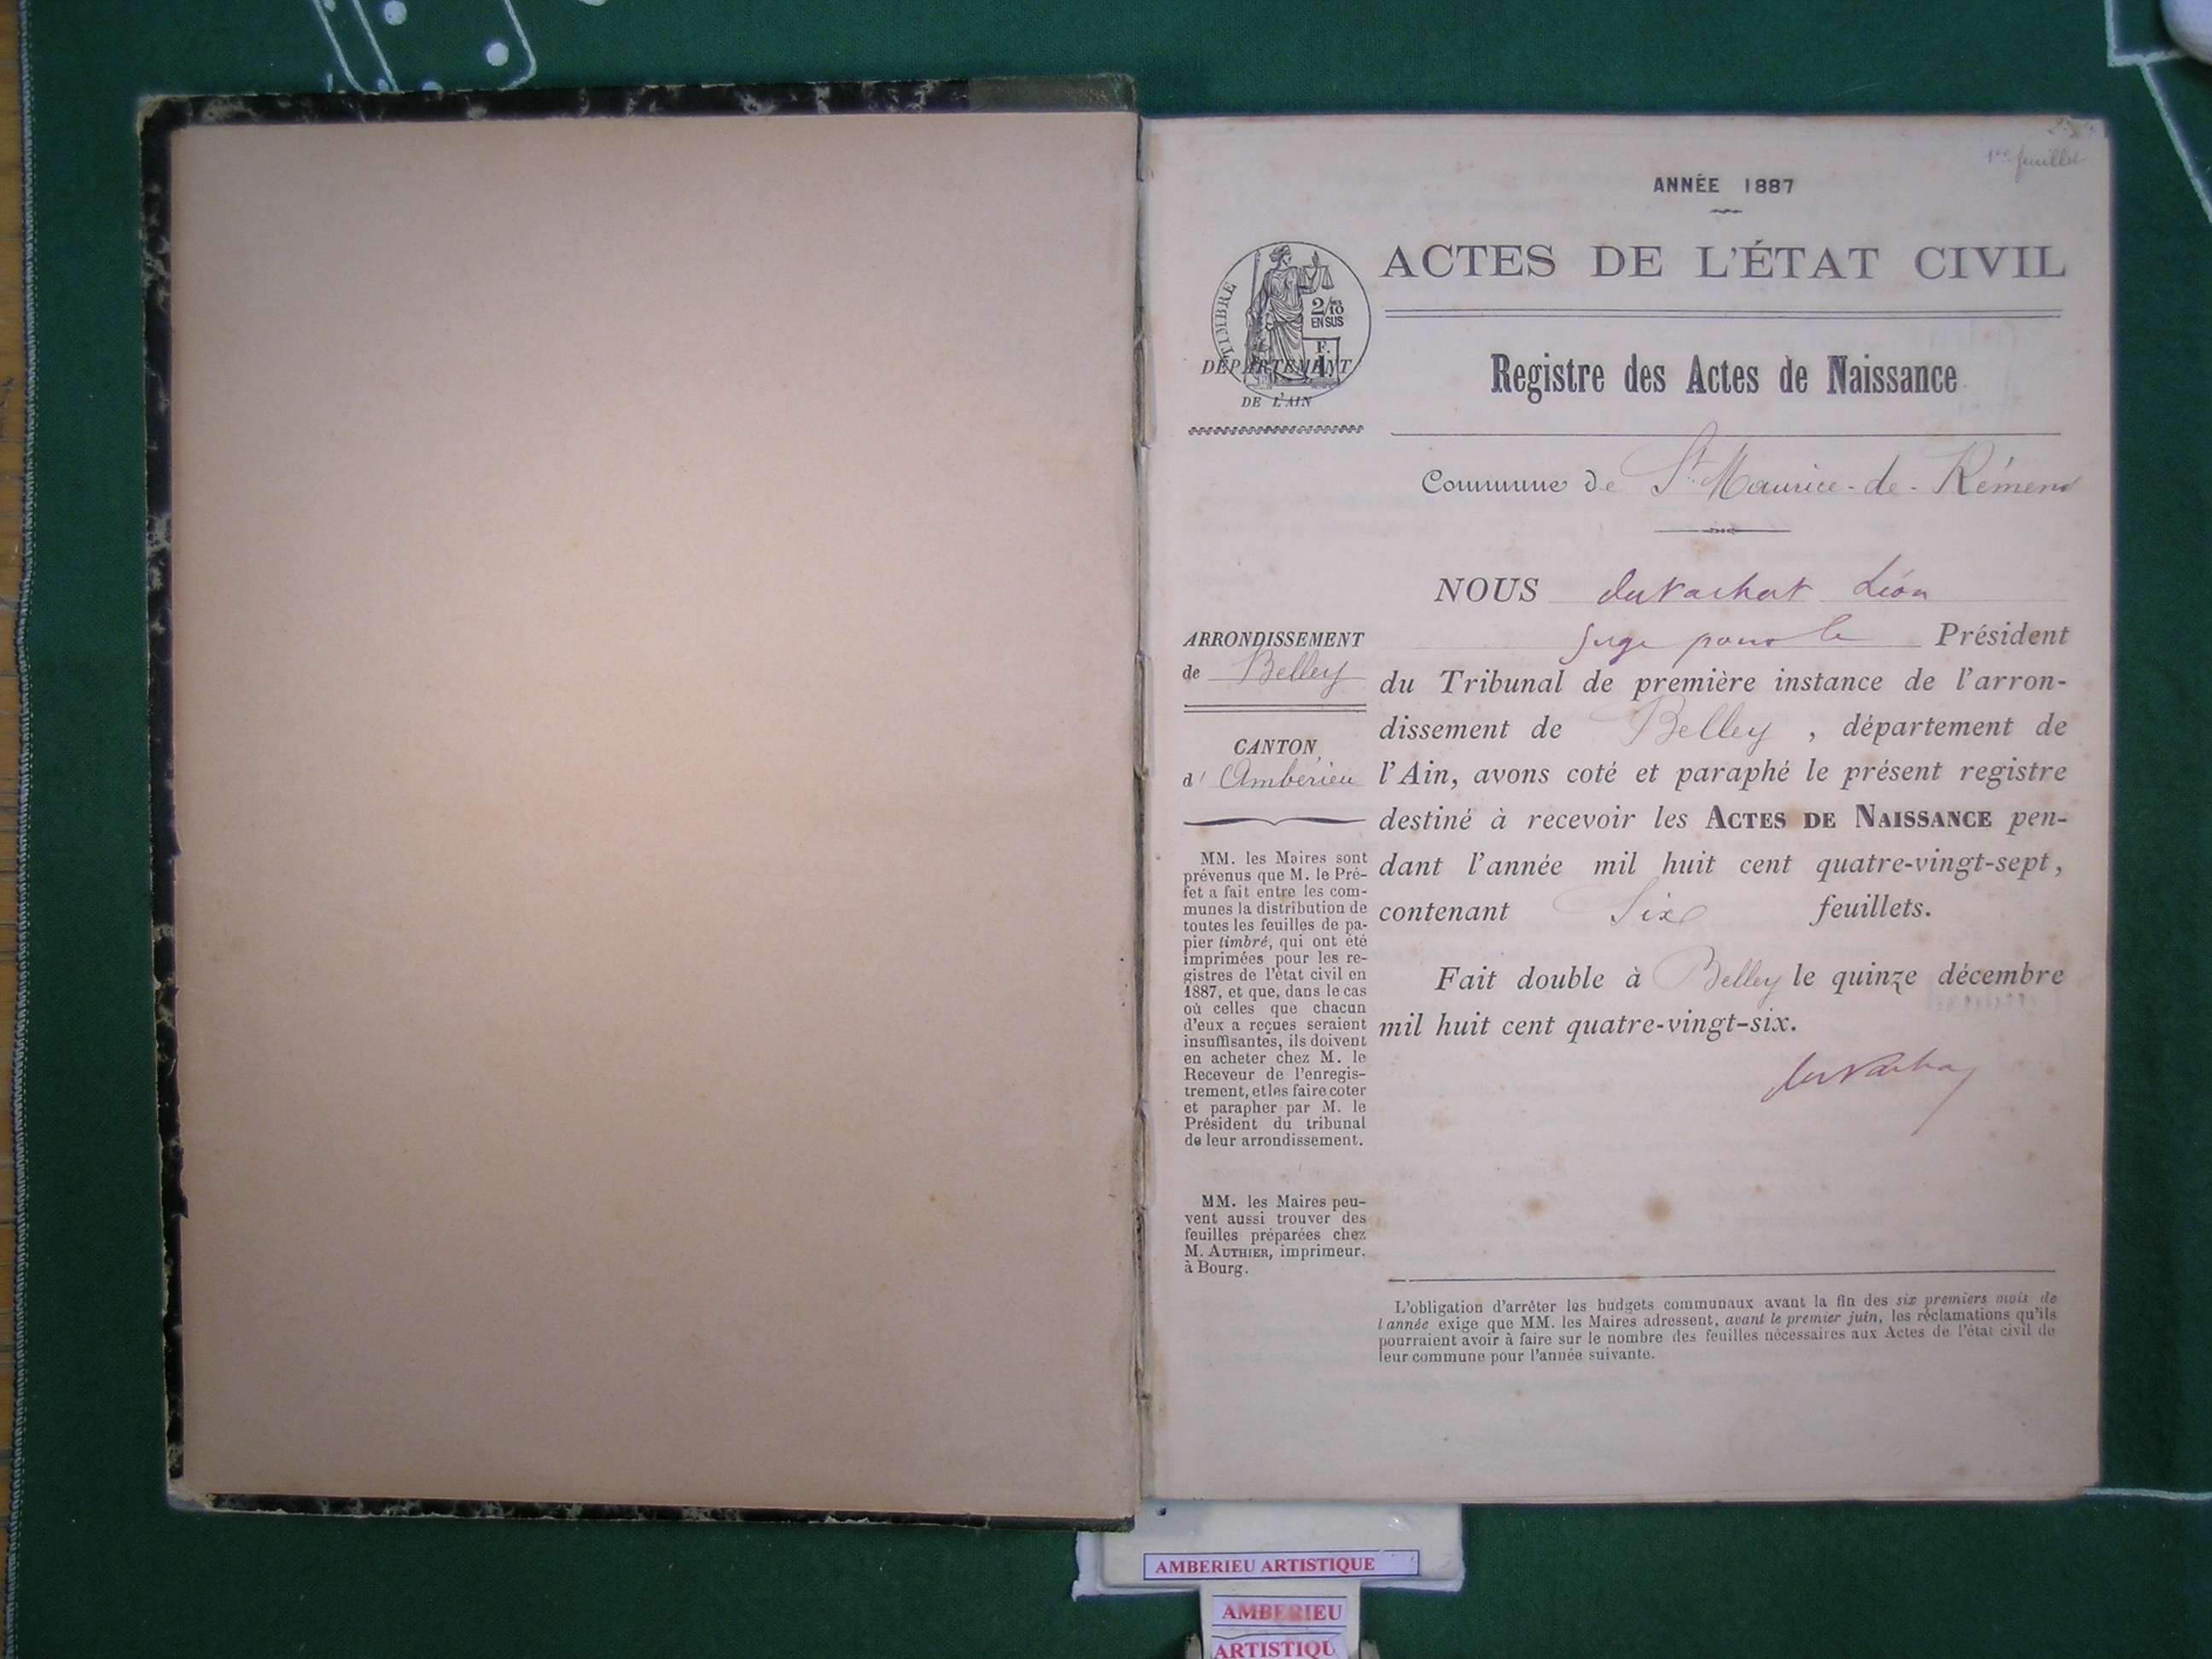 1er feuillet
ANNÉE 1887
ACTES DE L'ÉTAT CIVIL
TIMBRE
2/10
EN SUS
F.
1
DÉPARTEMENT
DE L'AIN
Registre des Actes de Naissance
Commune de St. Maurice-de-Rémens
NOUS Duvachat Léon
Juge pour le Président
ARRONDISSEMENT
de Belley
CANTON
d' Ambérieu
du Tribunal de première instance de l'arron-
dissement de Belley, département de
l'Ain, avons coté et paraphé le présent registre
destiné à recevoir les ACTES DE NAISSANCE pen-
dant l'année mil huit cent quatre-vingt-sept,
contenant Six feuillets.
Fait double à Belley le quinze décembre
mil huit cent quatre-vingt-six.
MM. les Maires sont
prévenus que M. le Pré-
fet a fait entre les com-
munes la distribution de
toutes les feuilles de pa-
pier timbré, qui ont été
imprimées pour les re-
gistres de l'état civil en
1887, et que, dans le cas
où celles que chacun
d'eux a reçues seraient
insuffisantes, ils doivent
en acheter chez M. le
Receveur de l'enregis-
trement, et les faire coter
et parapher par M. le
Président du tribunal
de leur arrondissement.
MM. les Maires peu-
vent aussi trouver des
feuilles préparées chez
M. AUTHIER, imprimeur,
à Bourg.
L'obligation d'arrêter les budgets communaux avant la fin des six premiers mois de
l'année exige que MM. les Maires adressent, avant le premier juin, les réclamations qu'ils
pourraient avoir à faire sur le nombre des feuilles nécessaires aux Actes de l'état civil de
leur commune pour l'année suivante.
AMBERIEU ARTISTIQUE
AMBERIEU
ARTISTIQU